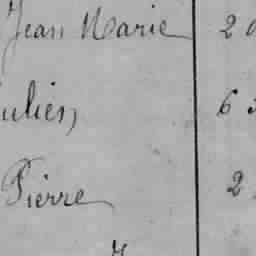 Jean Marie 2
ulien, 6
Pierre 2